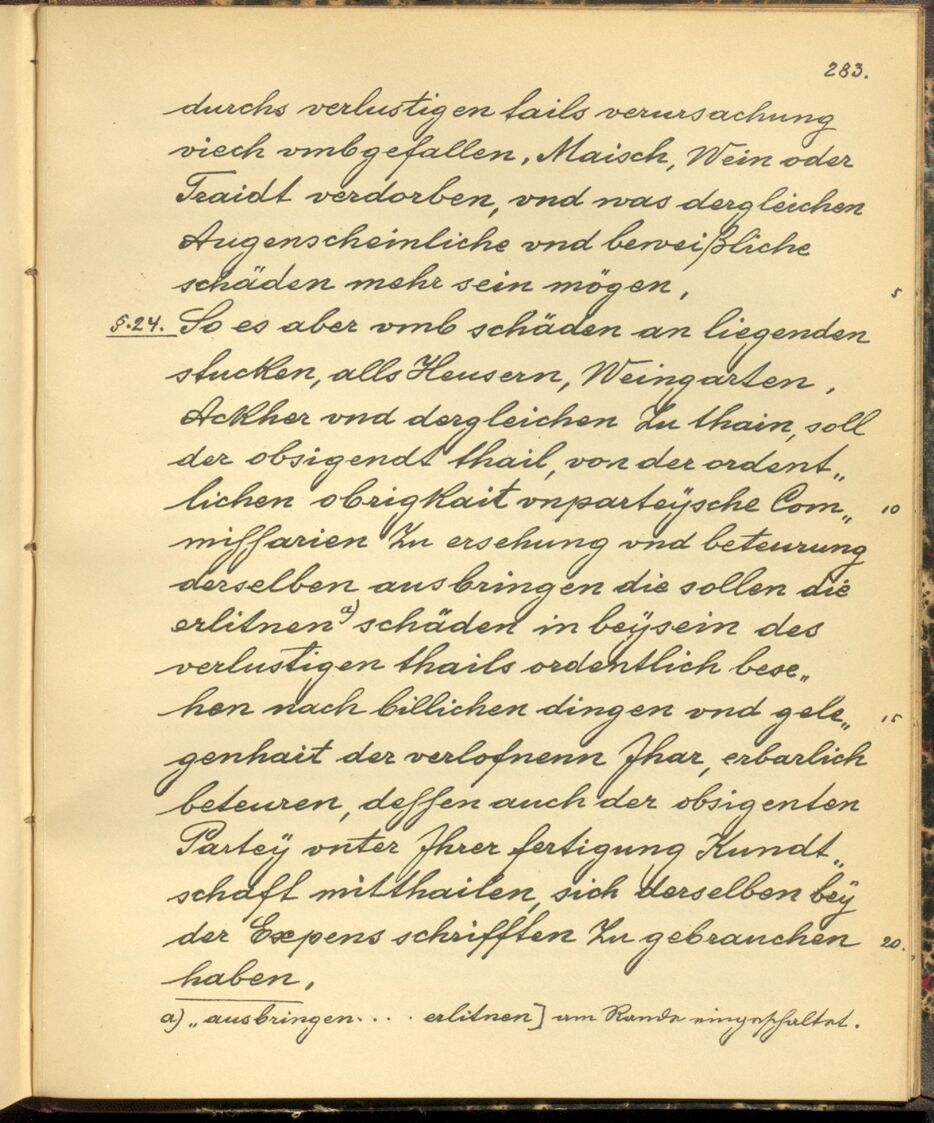 283.
durchs verlustigen tails verursachung
viech vmbgefallen, Maisch, Wein oder
Traidt verdorben, vnd was dergleichen
Augenscheinliche vnd beweißliche
schäden mehr sein mögen, 5
§.24. So es aber vmb schäden an liegenden
stucken, alls Heusern, Weingarten,
Ackher vnd dergleichen Zu thain, soll
der obsigendt thail, von der ordent„
lichen obrigkait vnparteÿsche Com„ 10
missarien Zu ersehung vnd beteurung
derselben ausbringen die sollen die
erlitnen a) schäden in beÿsein des
verlustigen thails ordentlich bese„
hen nach billichen dingen vnd gele„ 15
genhait der verlofnenn Jhar, erbarlich
beteuren, dessen auch der obsigenten
Parteÿ vnter Jhrer fertigung Kundt„
schaft mitthailen, sich derselben beÿ
der Expens schrifften Zu gebrauchen 20.
haben,
a) „ausbringen.... erlitnen] am Rande eingeschaltet.